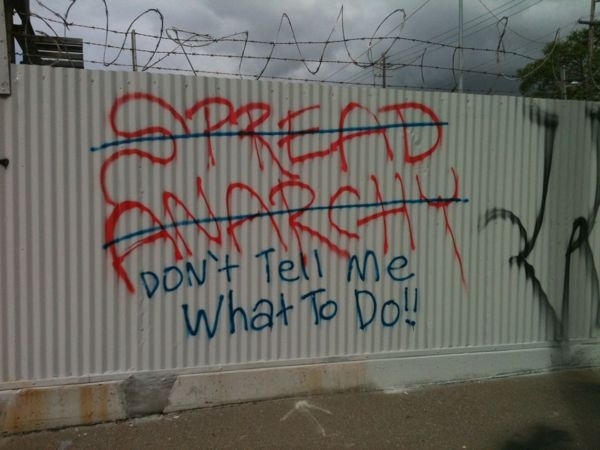 SPREAD
ANARCHY
DON't Tell Me
What To Do!!